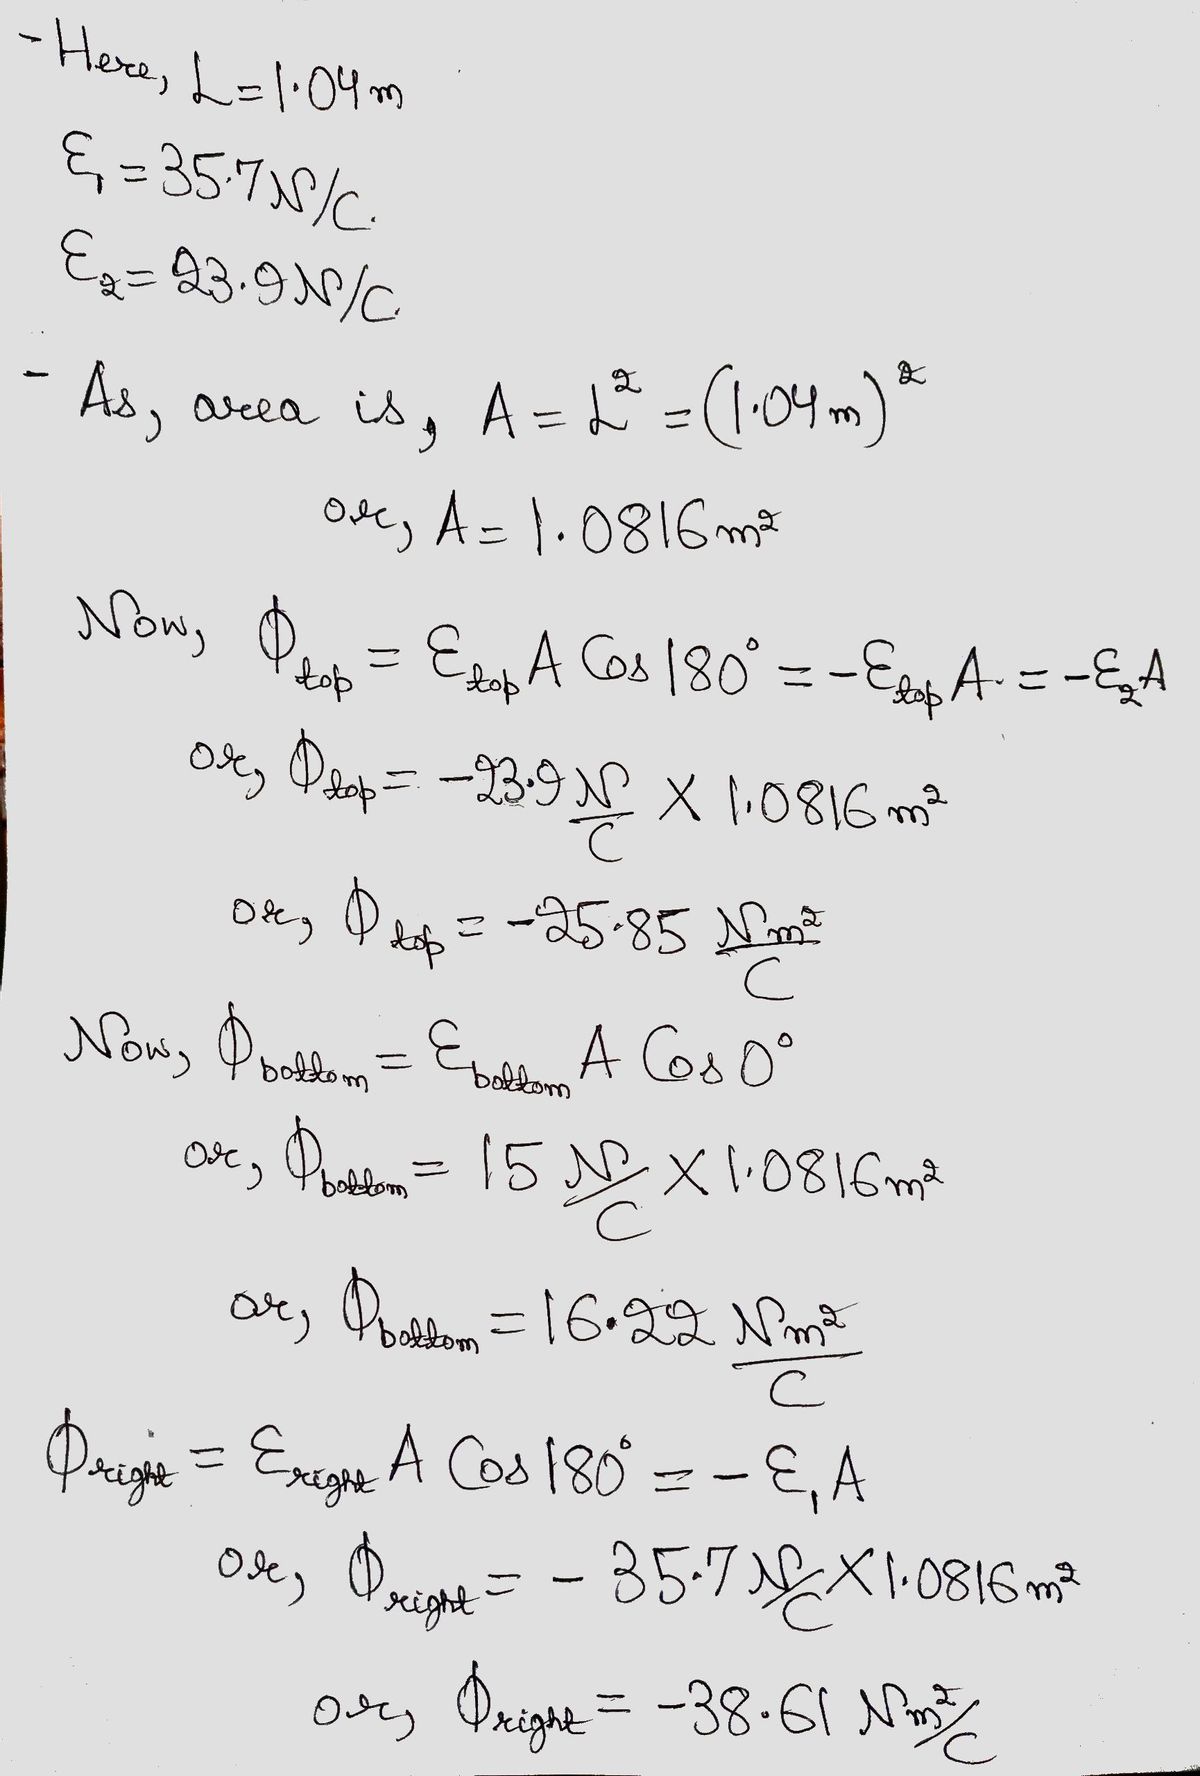 - Here, L = 1.04 m
E₁ = 35.7 N/C.
E₂ = 23.9 N/C.
- As, area is, A = L² = (1.04 m)²
or, A = 1.0816 m²
Now, Φtop = Etop A Cos 180° = -Etop A. = -E₂A
or, Φtop = -23.9 N/C × 1.0816 m²
or, Φtop = -25.85 Nm²/C
Now, Φbottom = Ebottom A Cos 0°
or, Φbottom = 15 N/C × 1.0816 m²
or, Φbottom = 16.22 Nm²/C
Φright = Eright A Cos 180° = - E₁ A
or, Φright = - 35.7 N/C × 1.0816 m²
or, Φright = -38.61 Nm²/C